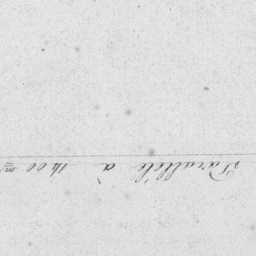 Parallèle à 1400 m